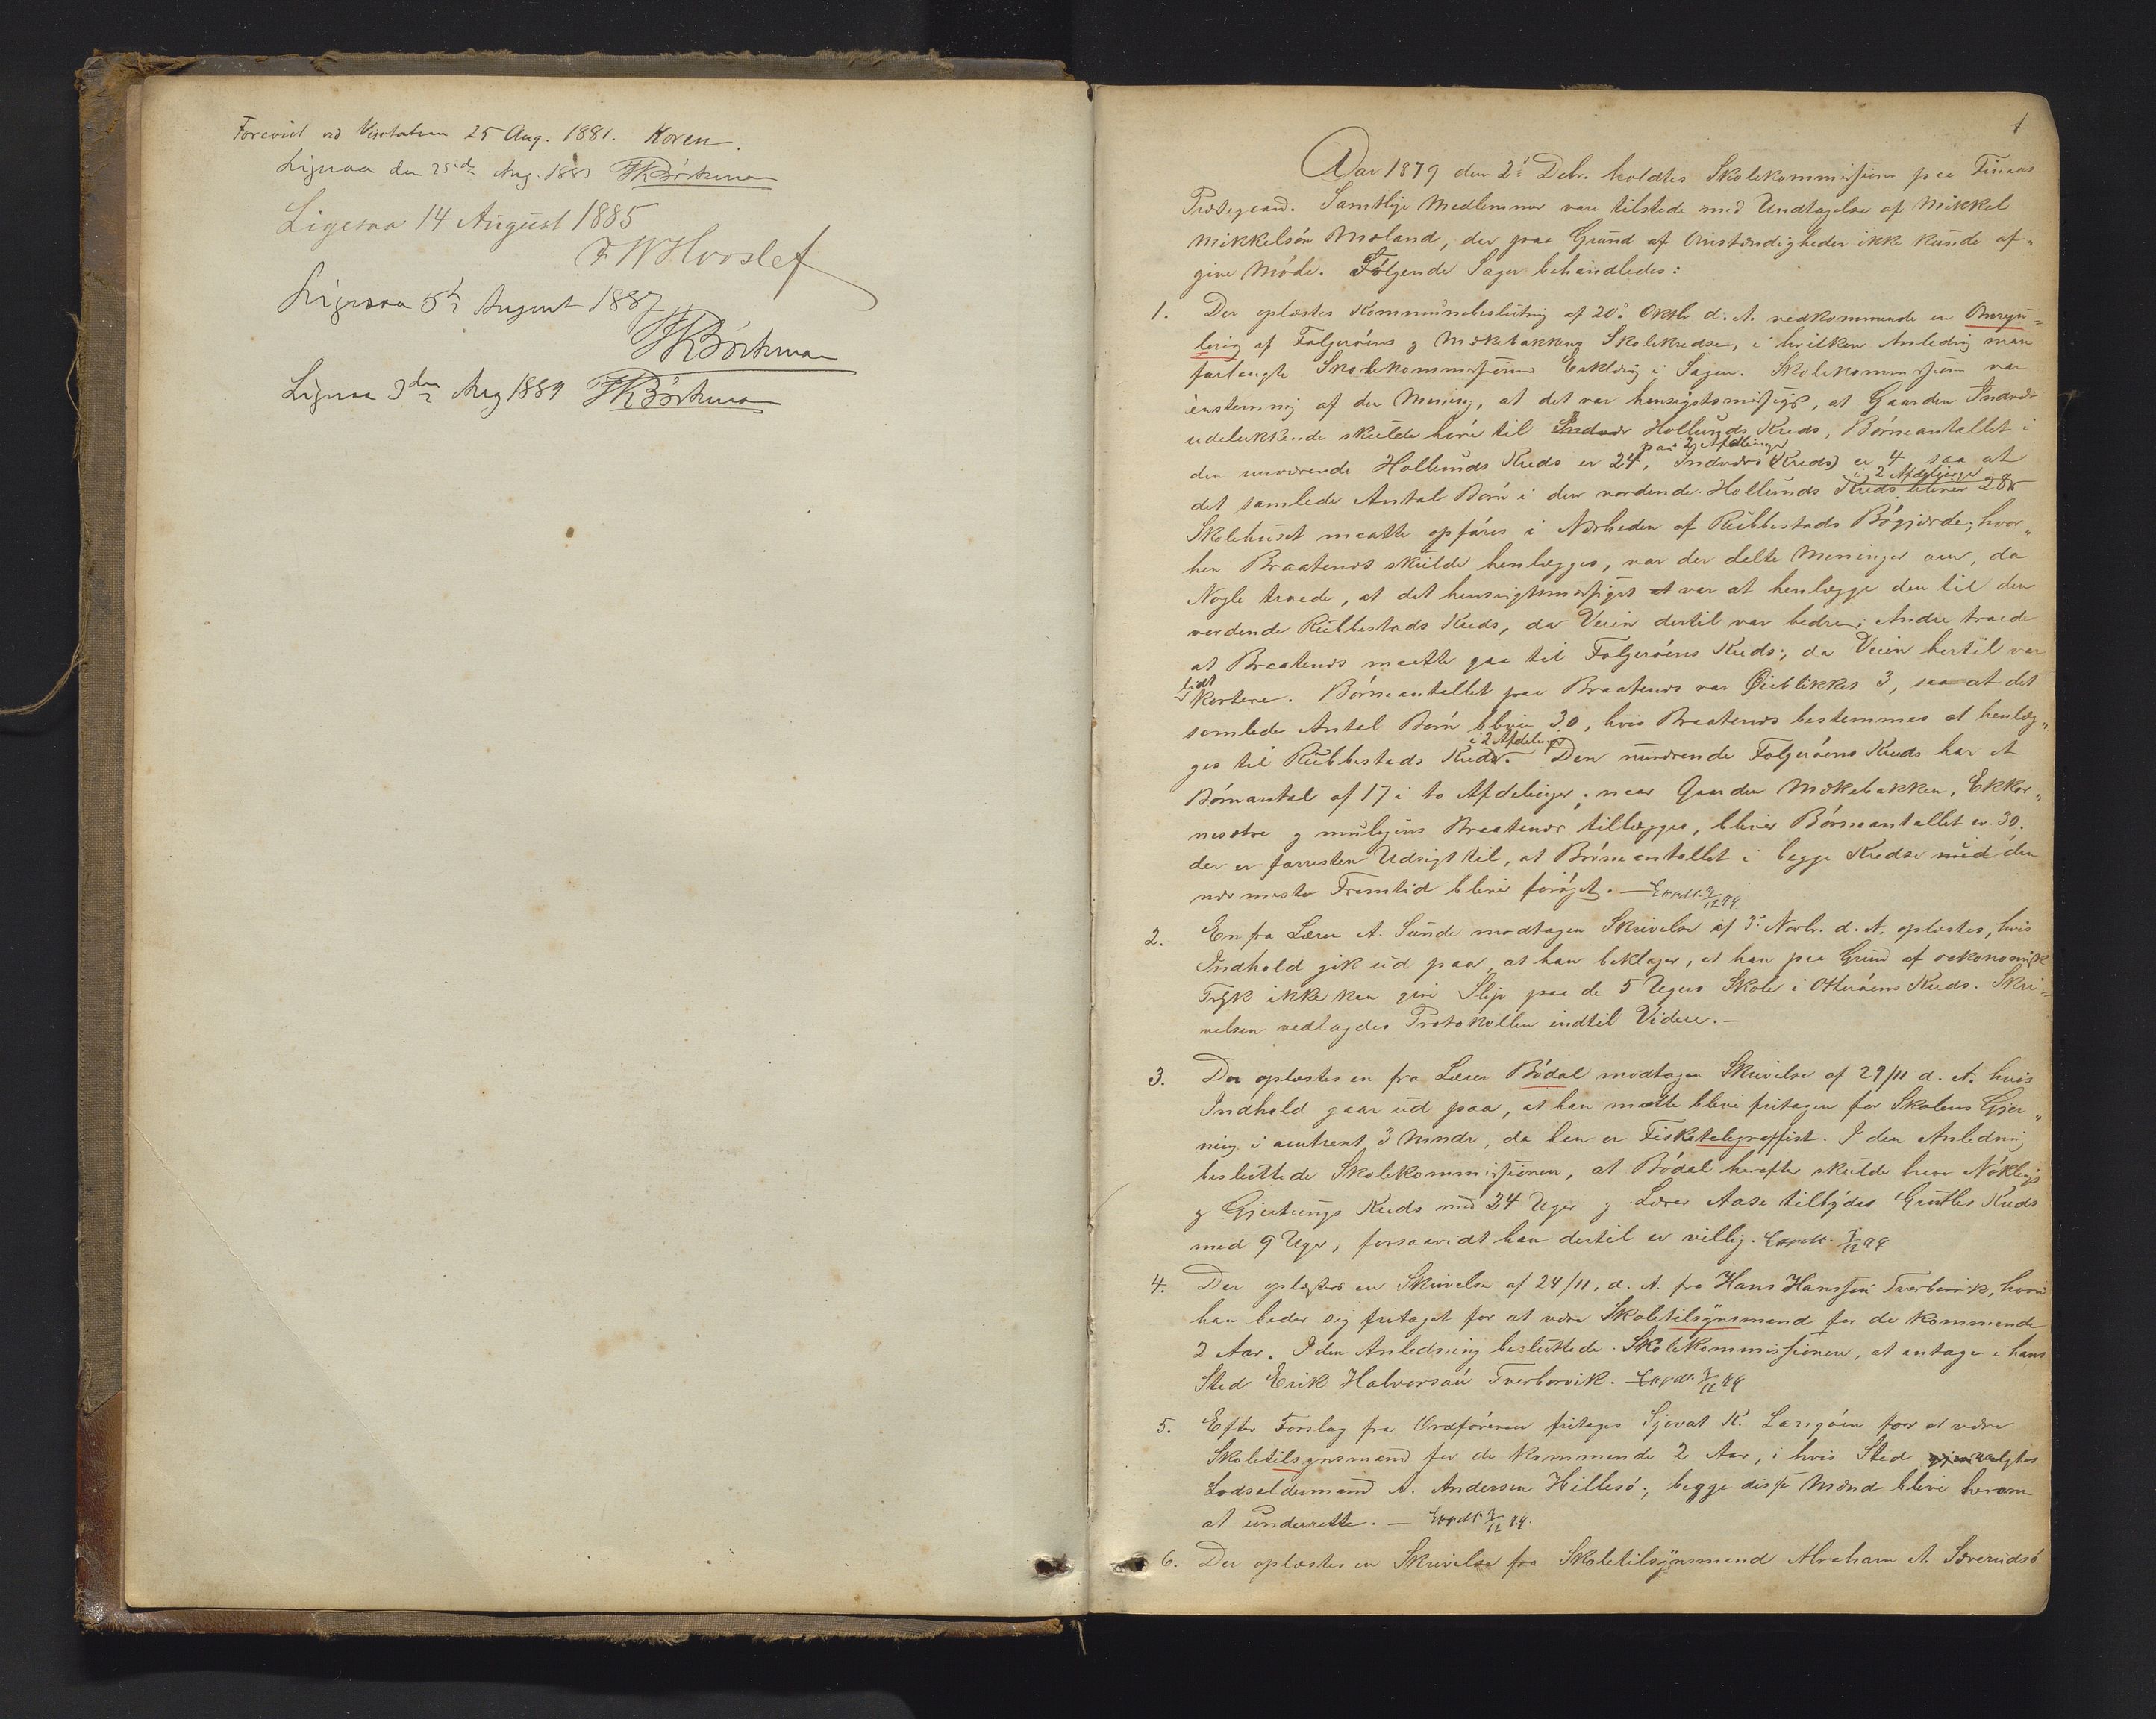 Forevist ved Visitatsen 25 Aug. 1881. Koren.
Ligesaa den 25de Aug. 1883
Ligesaa 14 August 1885
F W Hvoslef
Ligesaa 5te August 1887
Ligesaa 3die Aug 1889
1
Aar 1879 den 2. Debr. holdtes Skolekommission paa Finaas
Præstegaard. Samtlige Medlemmer vare tilstede med Undtagelse af Mikkel
Mikkelsón Moland, der paa Grund af Omstændigheder ikke kunde af„
give Móde. Fólgende Sager behandledes:
1. Der oplæstes Kommunebeslutning af 20. Oktbr d. A. vedkommende en Omregu=
lering af Folgeróens og Mækebakkens Skolekredse, i hvilken Anledning man
forlangte Skolekommissionens Erklæring i Sagen. Skolekommission var
enstemmig af den Mening, at det var hensigtsmæssigst, at Gaarden Indvær
udelukkende skulde hóre til Indvær Hollunds Kreds, Bórneantallet i
den nuværende Hollunds Kreds er 24, paa 2 Afdelinger Indværs (Kreds) er 4 saa at
det samlede Antal Bórn i den vordende Hollunds Kreds bliver 28 i 2 Afdelinger
Skolehuset maatte opfóres i Nærheden af Rubbestads Bógjærde; hvor„
hen Braatenes skulde henlægges, var der delte Meninger om, da
Nogle troede, at det hensigtsmæssigst at var at henlægge den til den
vordende Rubbestads Kreds, da Veien dertil var bedre; Andre troede
at Braatenes maatte gaa til Folgeróens Kreds; da Veien hertil var
lidt kortere. Bórneantallet paa Braatenes var Øieblikket 3, saa at det
samlede Antal Bórn bliver 30, hvis Braatenes bestemmes at henlæg„
ges til Rubbestads Kreds. i 2 Afdelinger Den nuværende Folgeróens Kreds har et
Bórneantal af 17 i to Afdelinger; naar Gaarden Mækebakken, Ekkor„
nesætre og muligens Braatenes tillægges, bliver Bórneantallet er 30.
der er forresten Udsigt til, at Bórneantallet i begge Kredse med den
nærmeste Fremtid bliver forøget. — Expdt. 9/12 79
2. En fra Lærer A. Sunde modtagen Skrivelse af 3. Novbr. d. A. oplæstes, hvis
Indhold gik ud paa at han beklager, at han paa Grund af oekonomisk
Tryk ikke kan give Slip paa de 5 Ugers Skole i Otteróens Kreds. Skri=
velsen vedlagdes Protokollen indtil Videre.—
3. Der oplæstes en fra Lærer Bódal modtagen Skrivelse af 29/11 d. A. hvis
Indhold gaar ud paa, at han maatte blive fritagen for Skolens Gjer„
ning i omtrent 3 Mndr, da han er Fisketelegraffist. I den Anledning
besluttede Skolekommissionen, at Bódal herefter skulde have Nøklings
og Gjertrungs Kreds med 24 Uger og Lærer Aase tilbydes Kreds
med 9 Uger, forsaavidt han dertil er villig. Expdt. 9/12 79
4. Der oplæstes en Skrivelse af 24/11, d. A. fra Hans Hanssón Tverborvik, hvori
han beder sig fritaget for at være Skoletilsynsmand for de kommende
2 Aar. I den Anledning besluttede Skolekommissionen, at antage i hans
Sted Erik Halvorsón Tverborvik. Expdt. 9/12 79
5. Efter Forslag fra Ordfóreren fritages Sjovat K. Laregóen for at være
Skoletilsynsmand for de kommende 2 Aar, i hvis Sted valgtes
Lodsoldermand A. Andersen Hillesó; begge disse Mænd blive herom
at underrette. — Expdt 9/12 79.
6. Der oplæstes en Skrivelse fra Skoletilsynsmand Abraham A. Særeidsó